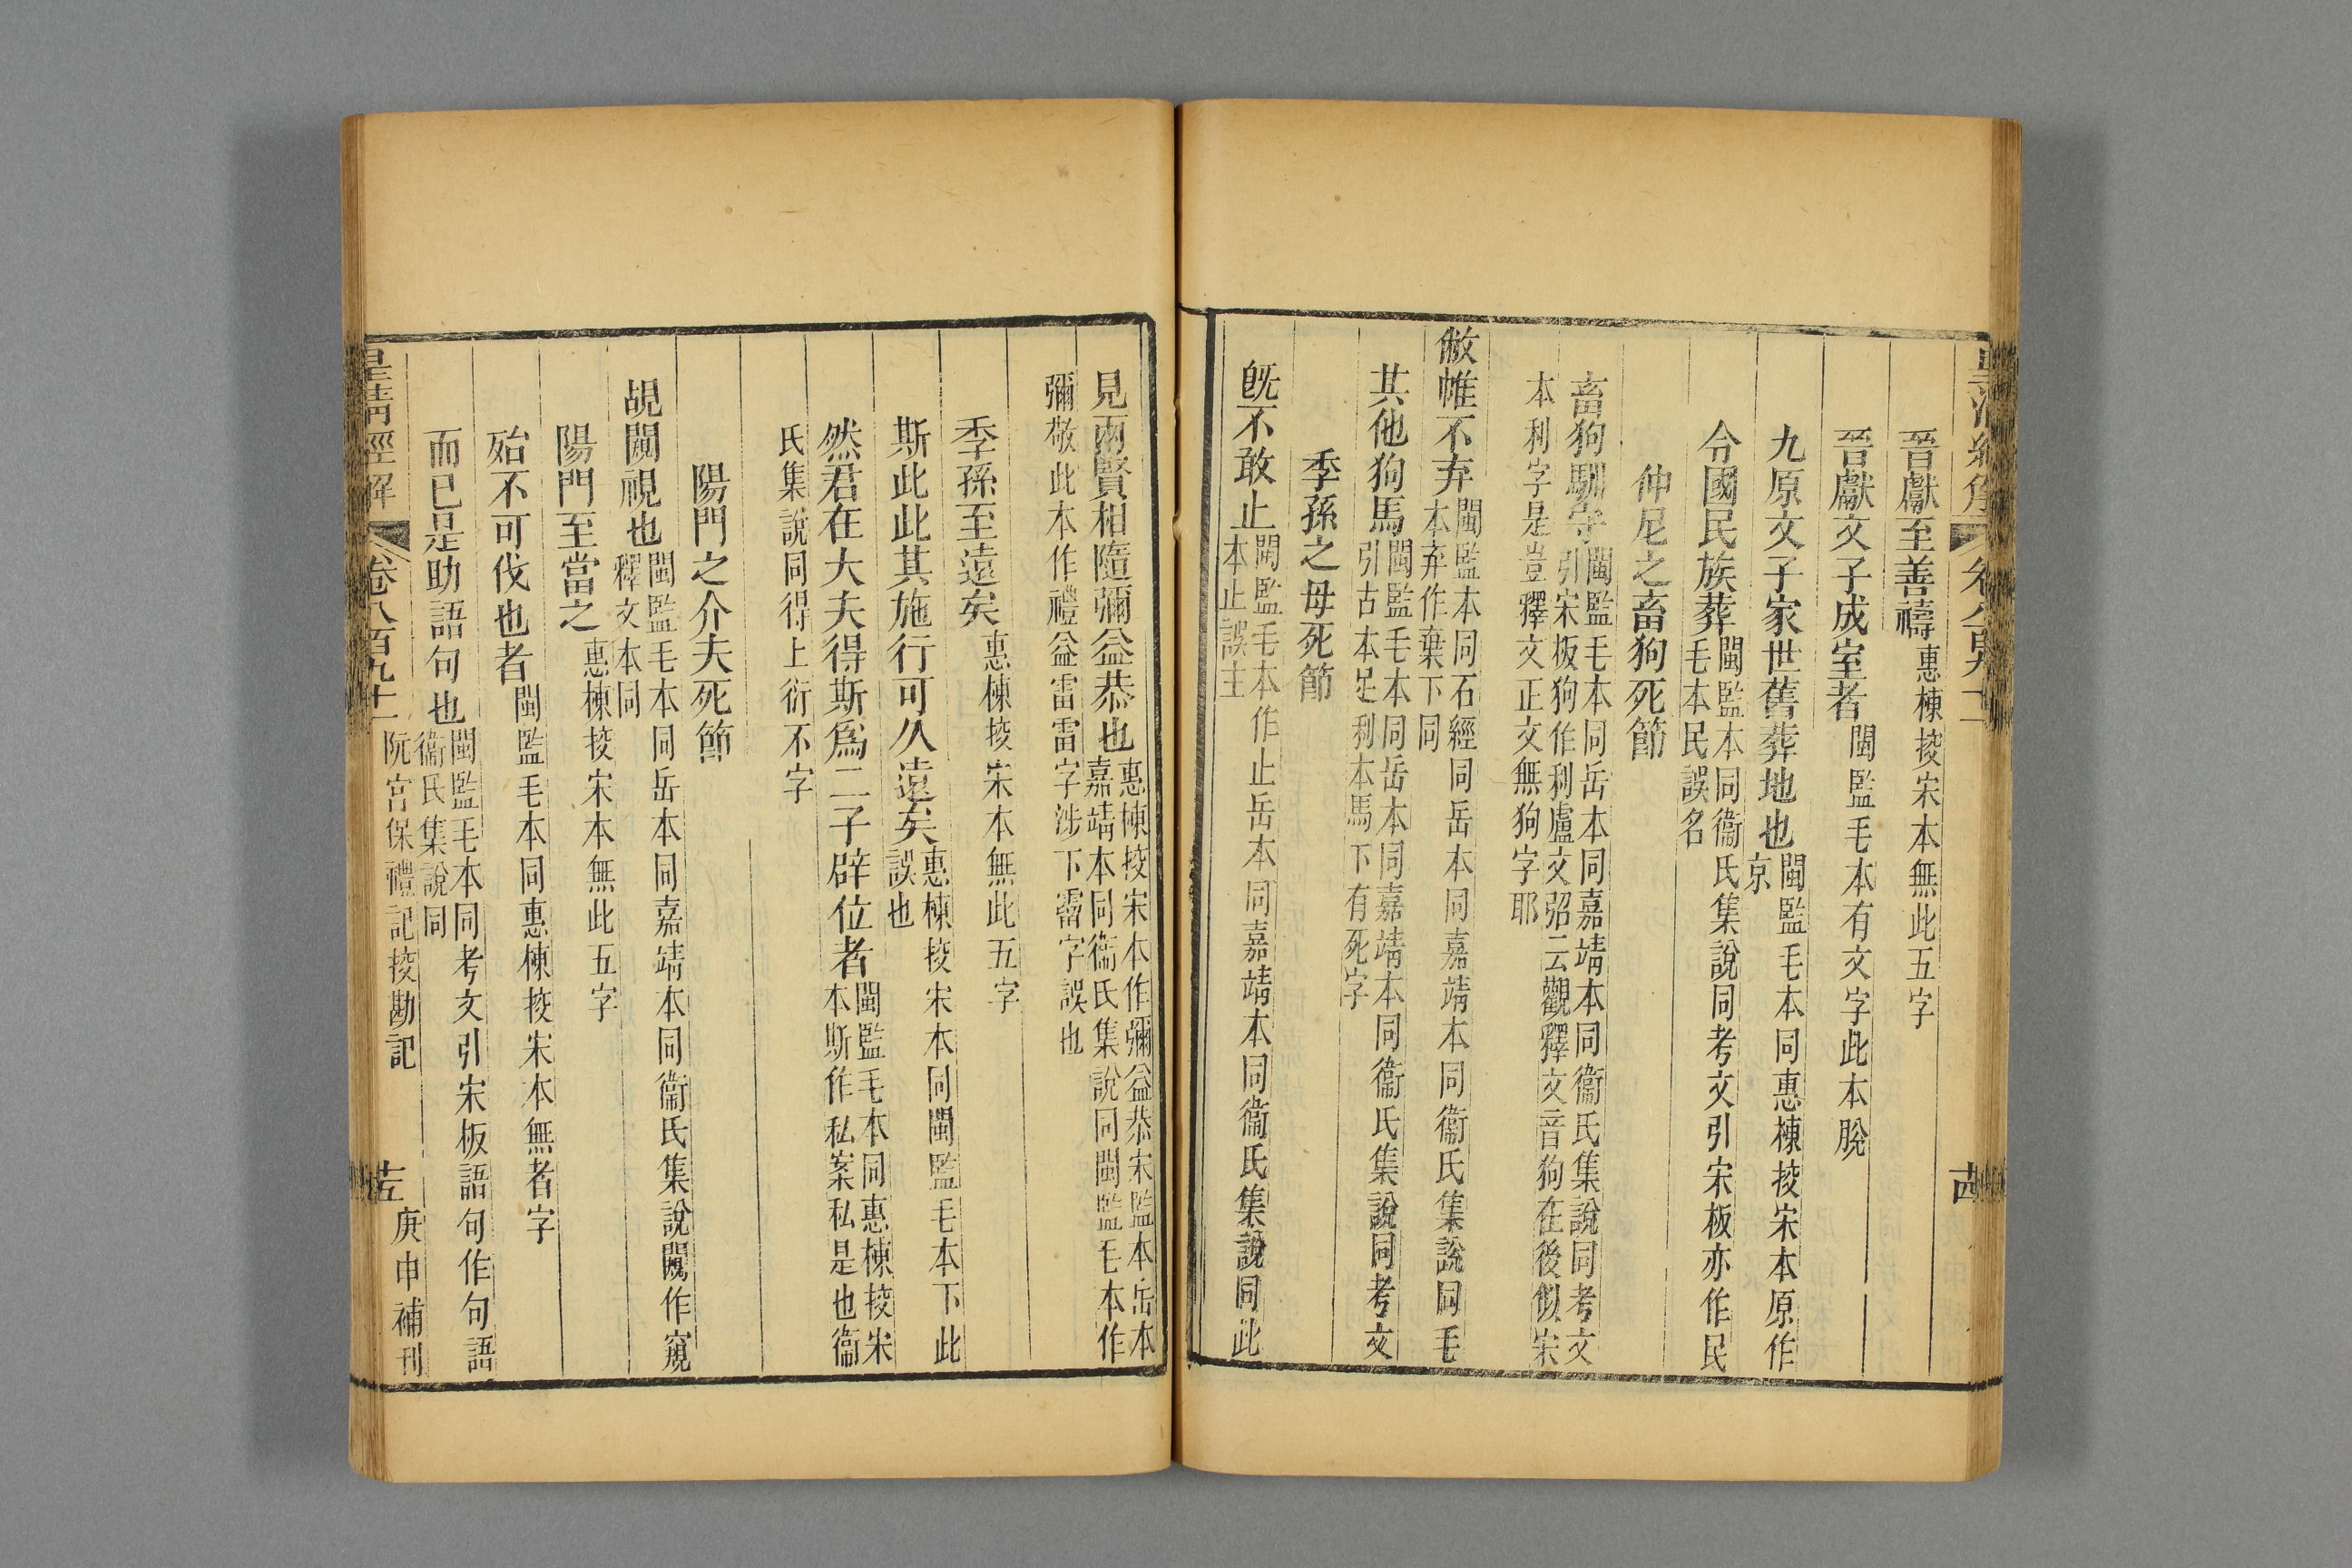 晉獻至善禱惠棟挍宋本無此五字
晉獻文子成室者閩監毛本有文字此本脫
九原文子家世舊葬地也閩監毛本同惠棟挍宋本原作京
令國民族葬閩監本同衞氏集說同考文引宋板亦作民毛本民誤名
仲尼之畜狗死節
畜狗馴守閩監毛本同岳本同嘉靖本同衞氏集說同考文引宋板狗作利盧文弨云觀釋文音狗在後似宋
本利字是豈釋文正文無狗字耶
敝帷不弃閩監本同石經同岳本同嘉靖本同衞氏集說同毛本弃作棄下同
其他狗馬閩監毛本同岳本同嘉靖本同衞氏集說同考文引古本足利本馬下有死字
季孫之母死節
旣不敢止閩監毛本作止岳本同嘉靖本同衞氏集說同此本止誤主
見兩賢相隨彌益恭也惠棟挍宋本作彌益恭宋監本岳本嘉靖本同衞氏集說同閩監毛本作
彌敬此本作禮益雷雷字涉下霤字誤也
季孫至遠矣惠棟挍宋本無此五字
斯此此其施行可久遠矣惠棟挍宋本同閩監毛本下此誤也
然君在大夫得斯爲二子辟位者閩監毛本同惠棟挍宋本斯作私案私是也衞
氏集說同得上衍不字
陽門之介夫死節
覘闚視也閩監毛本同岳本同嘉靖本同衞氏集說闚作窺釋文本同
陽門至當之惠棟挍宋本無此五字
殆不可伐也者閩監毛本同惠棟挍宋本無者字
而已是助語句也閩監毛本同考文引宋板語句作句語衞氏集說同
皇淸經解 卷八百九十二 阮宮保禮記挍勘記 庚申補刊